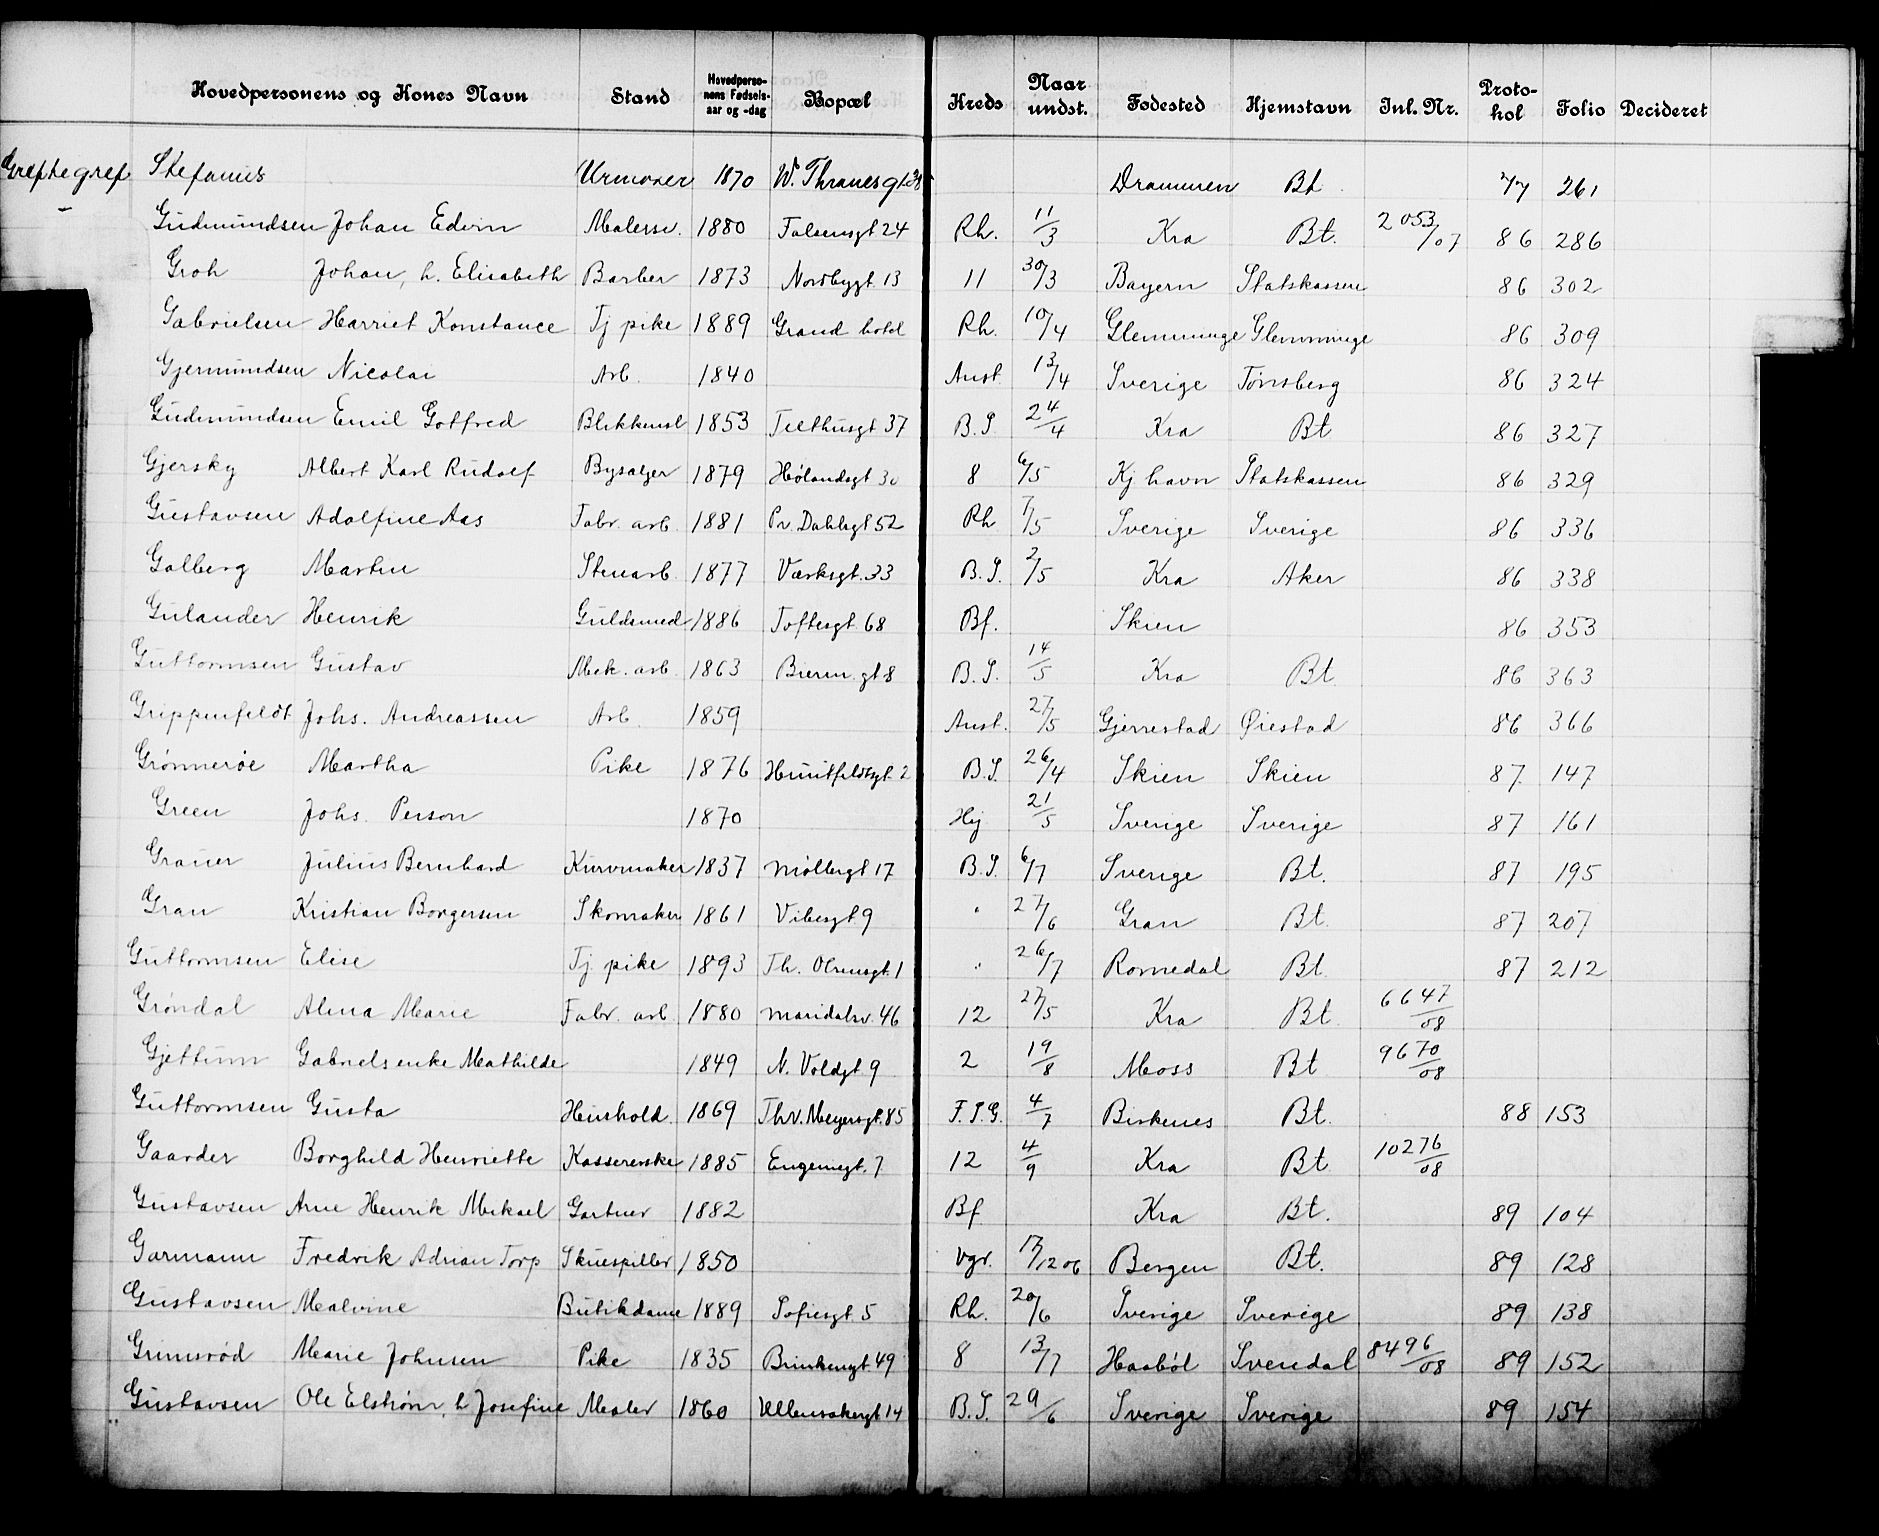 Hovedpersonens og Kones Navn Stand Hovedpersonens Fødselsaar og -dag Bopæl Kreds Naar undst. Fødested Hjemstavn Inl. Nr. Protokol Folio Decideret
Stefanus Urmaker 1870 W. Thranesgt 38 Drammen Bt. 77 261
Gudmundsen Johan Edvin Malersv. 1880 Falsensgt 24 Rh. 11/3 Kra Bt. 2053/07 86 286
Groh Johan, h. Elisabeth Barber 1873 Nordbygt 13 11 30/3 Bayern Statskassen 86 302
Gabrielsen Harriet Konstance Tj pike 1889 Grand hotel Rh. 10/4 Glemminge Glemminge 86 309
Gjermundsen Nicolai Arb. 1840 Anst. 13/4 Sverige Tønsberg 86 324
Gudmundsen Emil Gotfred Blikkensl 1853 Telthusgt 37 B.S. 24/4 Kra Bt 86 327
Gjersky Albert Karl Rudolf Bysalger 1879 Hølandsgt 30 8 6/5 Kj havn Statskassen 86 329
Gustavsen Adolfine Aas Fabr. arb. 1881 Pv. Dahlsgt 52 Rh 7/5 Sverige Sverige 86 336
Galberg Martin Stenarb. 1877 Værksgt. 33 B.S. 2/5 Kra Aker 86 338
Gulander Henrik Guldsmed 1886 Toftesgt 68 Bf. Skien 86 353
Guttormsen Gustav Mek. arb. 1863 Bieren gt 8 B.S. 14/5 Kra Bt 86 363
Grippenfeldt Johs. Andreassen Arb. 1859 Anst. 27/5 Gjerrestad Øiestad 86 366
Grønnerøe Martha Pike 1876 Huitfeldtsgt. 2 B.S. 26/4 Skien Skien 87 147
Green Johs. Person 1870 Hj 21/5 Sverige Sverige 87 161
Grauer Julius Bernhard Kurvmaker 1837 Møllergt 17 B.S. 6/7 Sverige Bt. 87 195
Gran Kristian Borgersen Skomaker 1861 Vibesgt 9 " 27/6 Gran Bt. 87 207
Guttormsen Elise Tj. pike 1893 Th. Olsensgt. 1 " 26/7 Romedal Bt. 87 212
Grøndal Alma Marie Fabr. arb. 1880 Maridalsv. 46 12 27/5 Kra Bt 6647/08
Gjettum Gabrielsenke Mathilde 1849 N. Voldgt 9 2 19/8 Moss Bt 9670/08
Guttormsen Gusta Hushold. 1869 Thv. Meyersgt. 85 F.S.G. 4/7 Birkenes Bt. 88 153
Gaarder Borghild Henriette Kassererske 1885 Eugeniegt. 7 12 4/9 Kra Bt 10276/08
Gustavsen Arne Henrik Mikael Gartner 1882 Bf Kra Bt. 89 104
Garmann Fredrik Adrian Torp Skuespiller 1850 Vgr. 17/12 06 Bergen Bt. 89 128
Gustavsen Malvine Butikdame 1889 Sofiesgt. 5 Rh. 20/6 Sverige Sverige 89 138
Grimsrød Marie Johnsen Pike 1835 Brinkengt. 49 8 13/7 Haabøl Svendal 8496/08 89 152
Gustavsen Ole Elstrøm, h Josefine Maler 1860 Ullensakergt 14 B.S. 29/6 Sverige Sverige 89 154